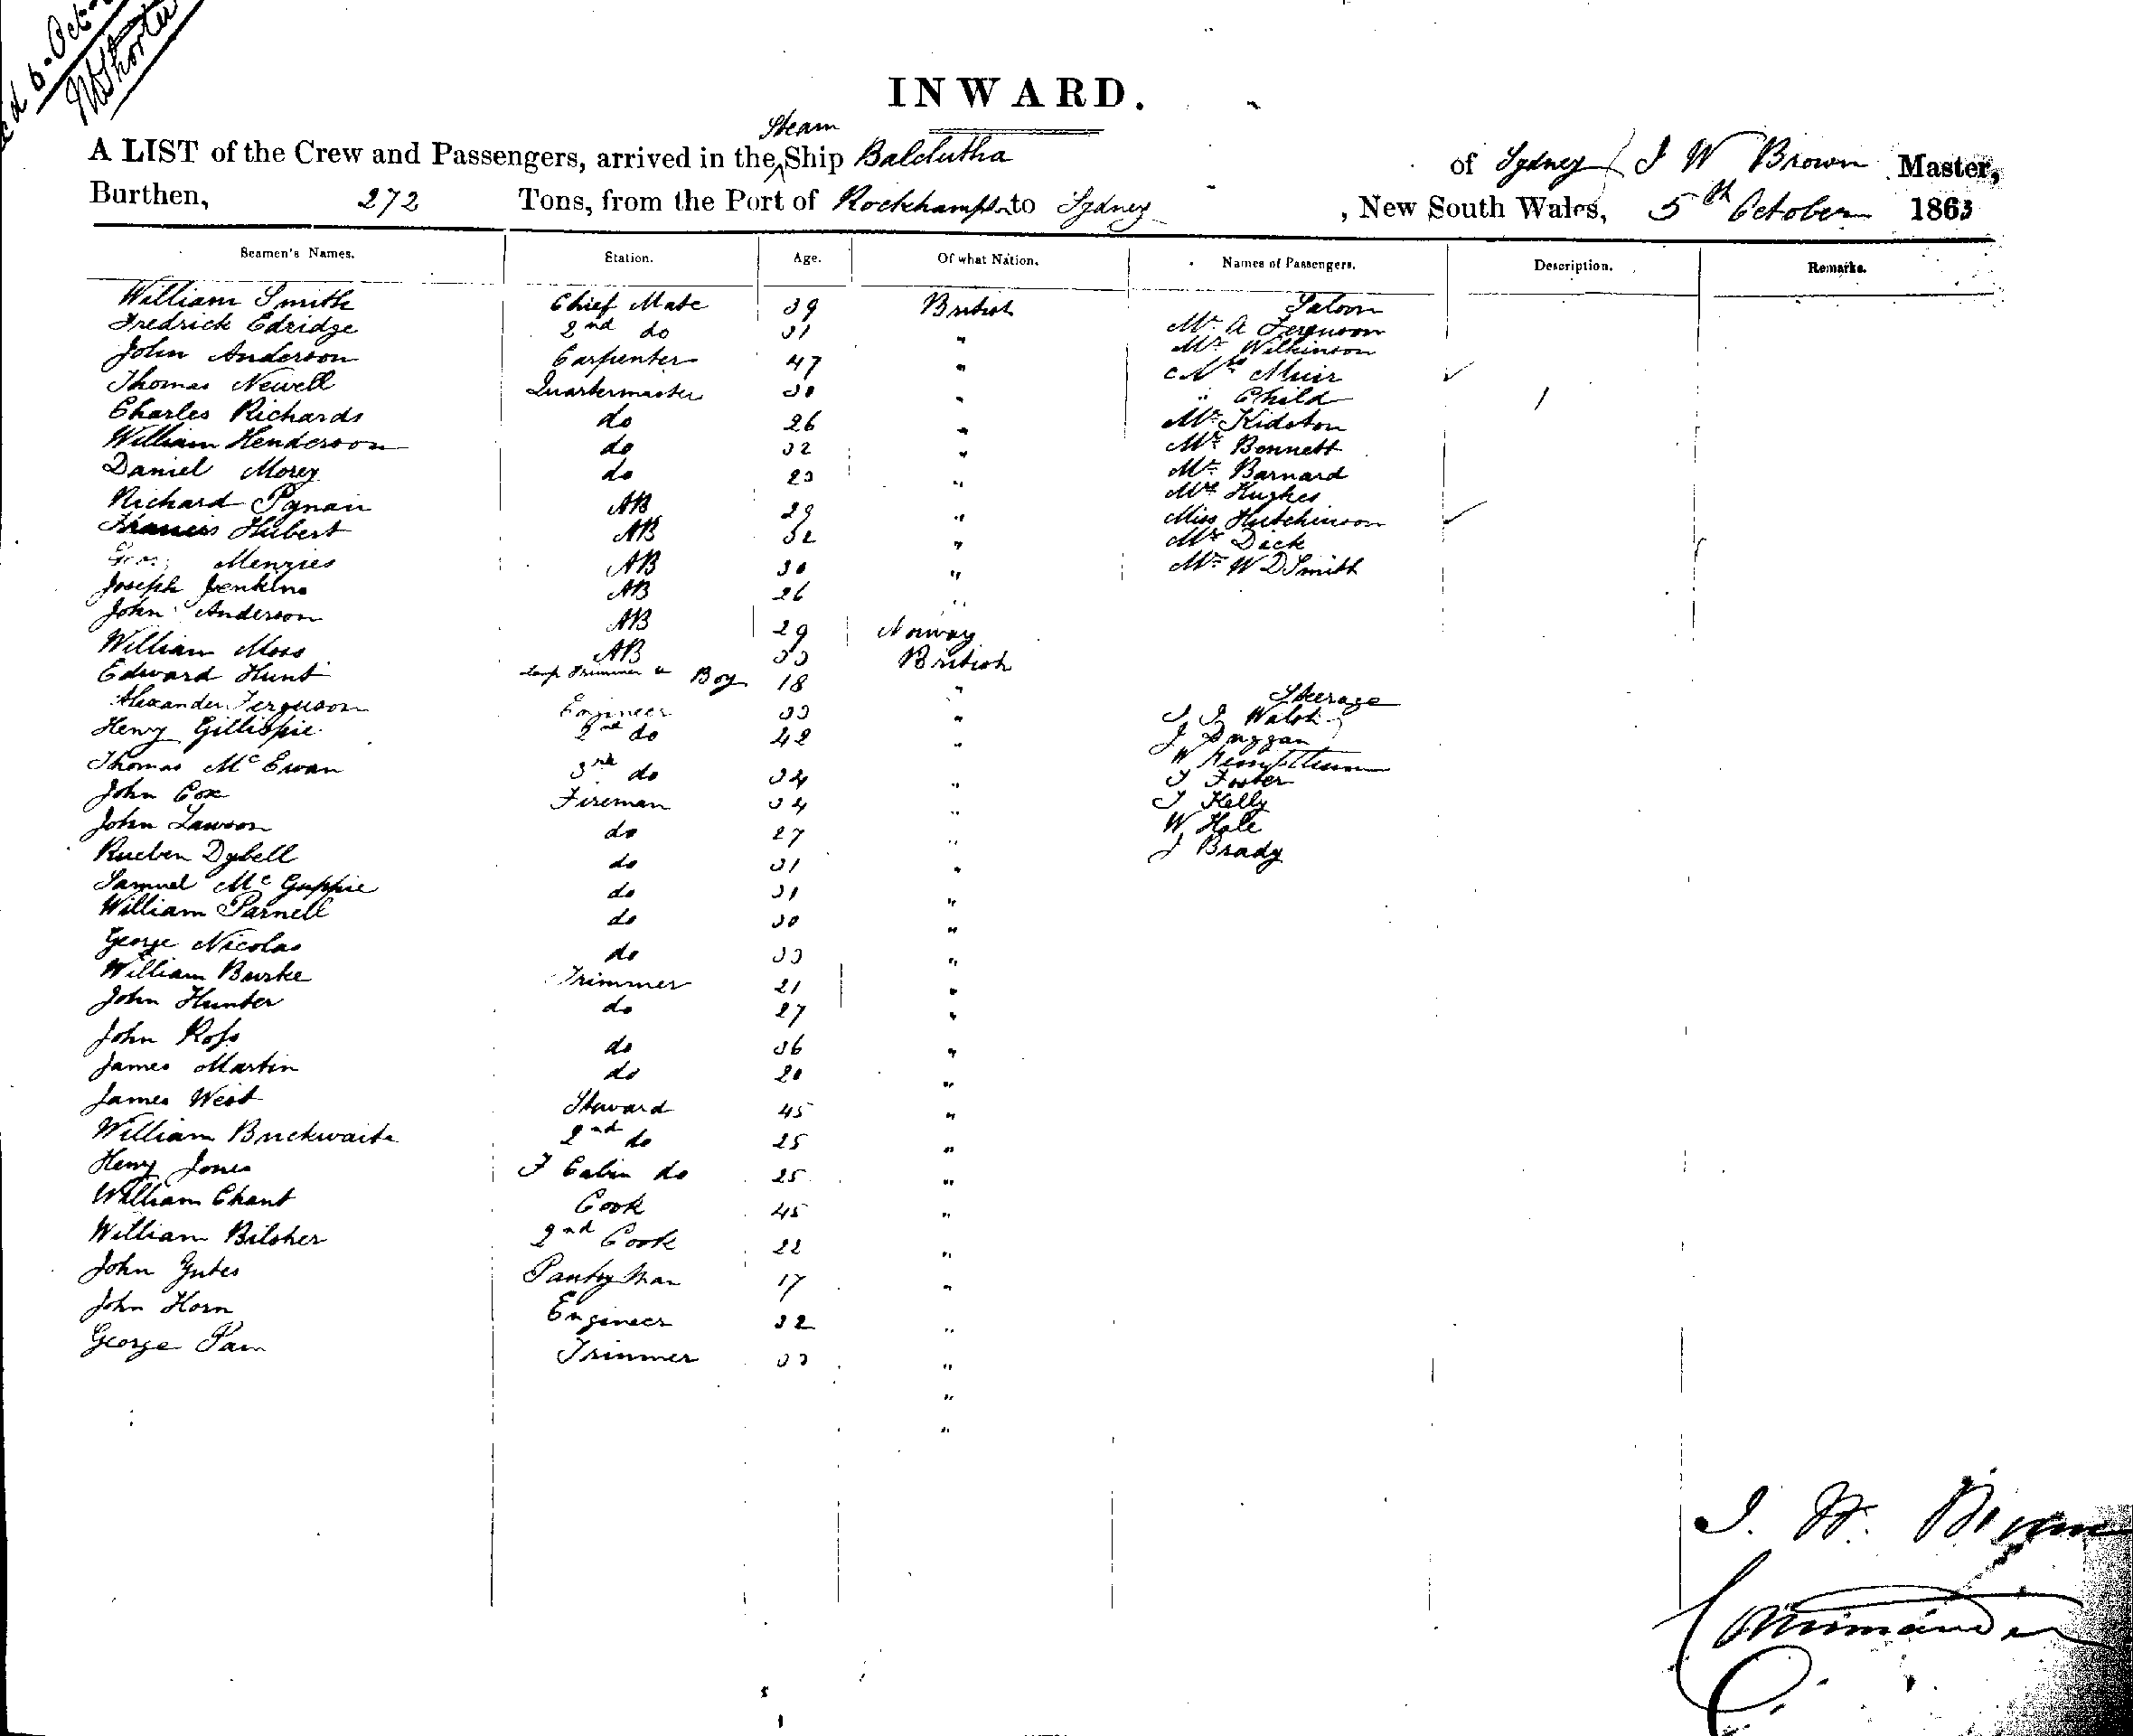 6 Oct
INWARD.
Steam
A LIST of the Crew and Passengers, arrived in the Ship Balclutha of Sydney J W Brown Master,
Burthen, 272 Tons, from the Port of Rockhampton to Sydney, New South Wales, 5th October 1863
Seamen's Names. Station. Age. Of what Nation. Names of Passengers. Description. Remarks.
William Smith Chief Mate 39 British Saloon
Fredrick Edridge 2nd do 31 " Mr. A Ferguson
John Anderson Carpenter 47 " Mr Wilkinson
Thomas Newell Quartermaster 30 " Mrs Muir
" Child 1
Charles Richards do 26 " Mr Kidston
William Henderson do 32 " Mr Bennett
Daniel Morey do 23 " Mr Barnard
Richard AB 29 " Mr Hughes
Francis Hubert AB 32 " Miss Hutchinson
Mr Dick
Menzies AB 30 " Mr W D Smith
Joseph Jenkins AB 26 "
John Anderson AB 29 Norway
William Moss AB 33 British
Edward Hunt Lamp Trimmer & Boy 18 "
Steerage
Alexander Ferguson Engineer 33 " Walsh
Henry Gillispie 2nd do 42 " J Duggan
W
Thomas McEwan 3rd do 34 " J Foster
John Cox Fireman 34 " J Kelly
John Lawson do 27 " W Hale
Rueben Dybell do 31 " J Brady
Samuel McGuppie do 31 "
William Parnell do 30 "
George Nicolas do 33 "
William Burke Trimmer 21 "
John Hunter do 27 "
John Ross do 36 "
James Martin do 20 "
James West Steward 45 "
William Brickwaite 2nd do 25 "
Henry Jones F Cabin do 25 "
William Chant Cook 45 "
William Bilsher 2nd Cook 22 "
John Pantry Man 17 "
John Horn Engineer 32 "
George Trimmer 33 "
"
"
J. W. Brown
Commander